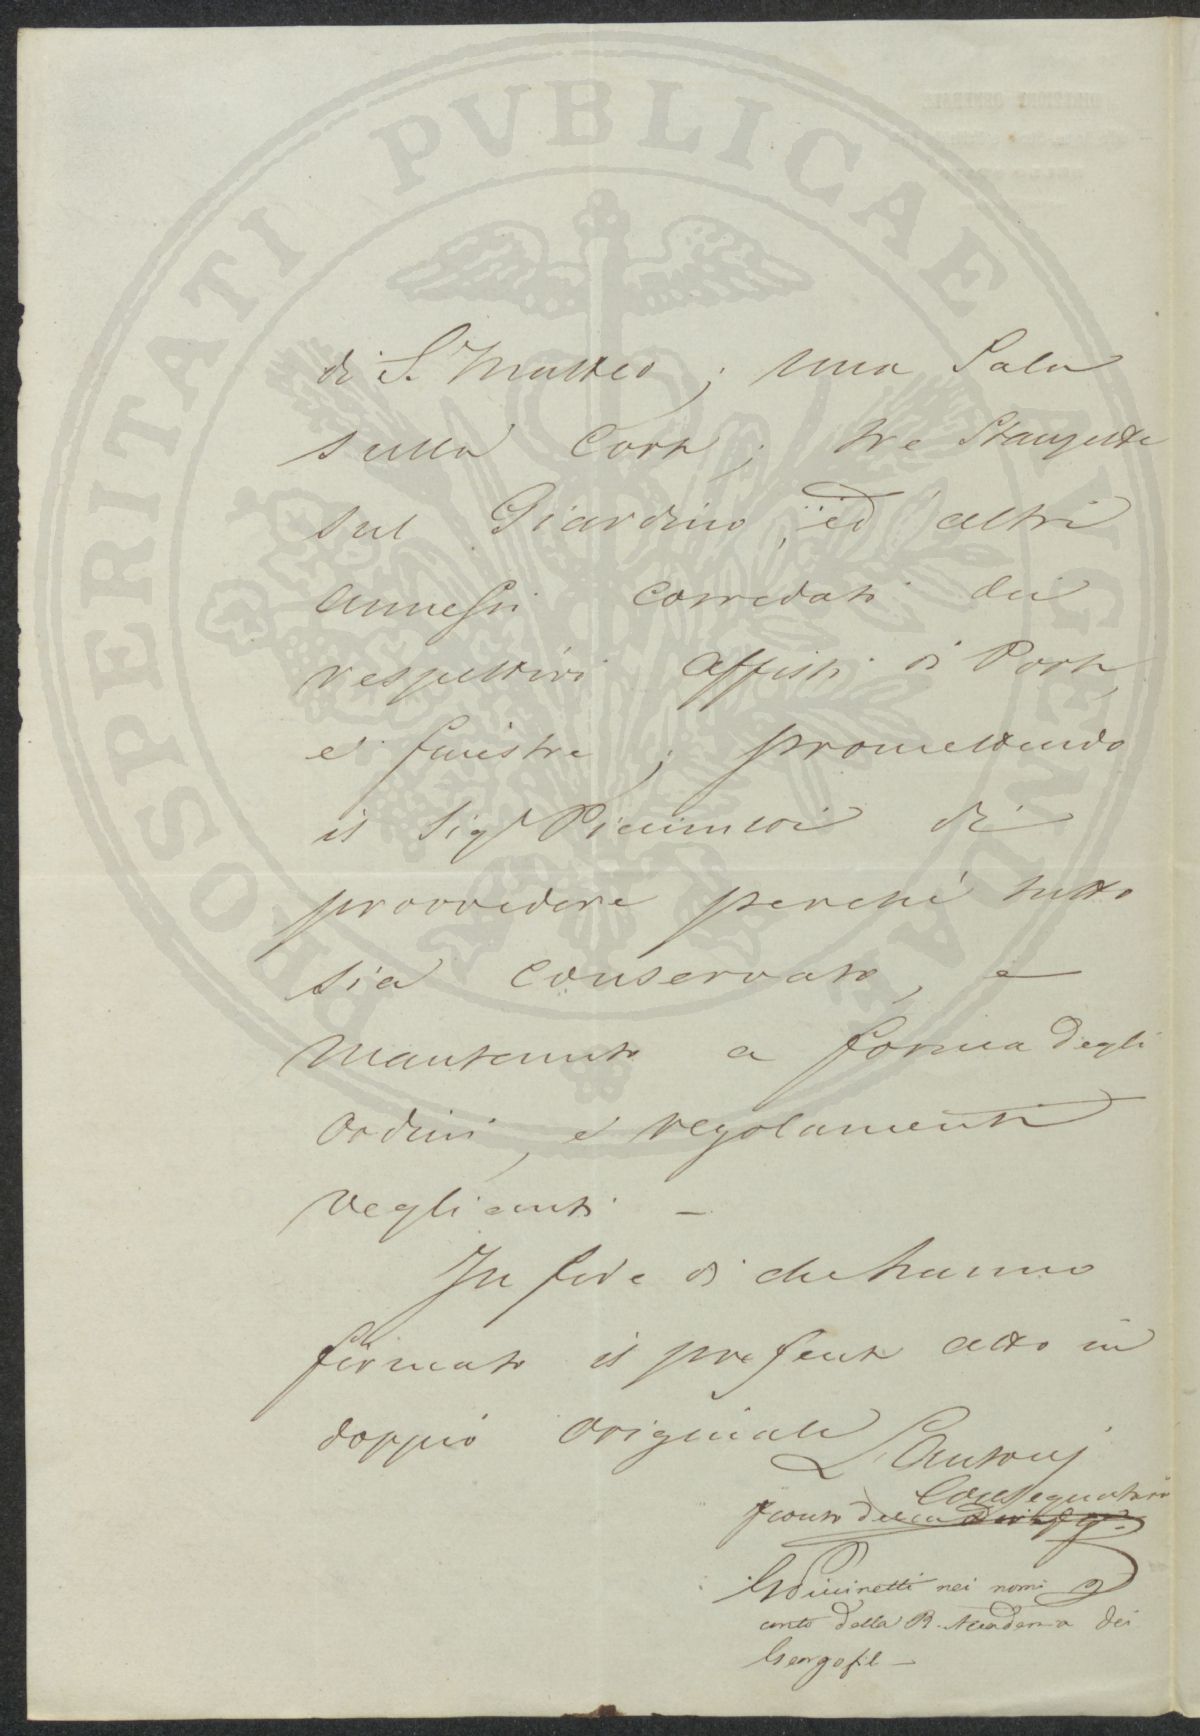 PROSPERITATI PVBLICAE AVGENDAE
di S. Matteo; una Sala
sulla Corte; tre Stanzette
sul Giardino, ed altri
annessi corredati dei
respettivi affissi di Porte,
e finestre; promettendo
il Sigr di
provvedere perché tutto
sia conservato, e
mantenuto a forma degli
ordini, e regolamenti
veglianti —
In fede di che hanno
firmato il presente atto in
doppio originale
L. Antonj
Consegnatario
nei nomi
della R. Accademia dei
Georgofili —